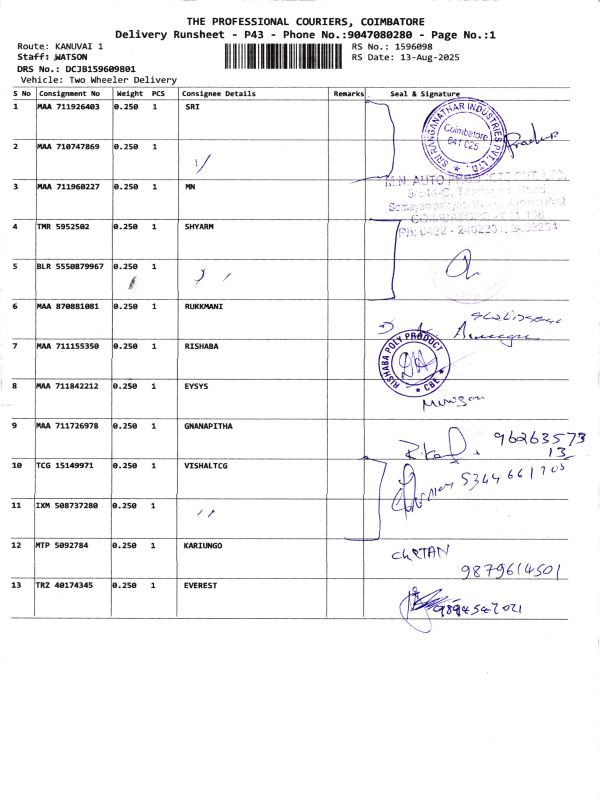 THE PROFESSIONAL COURIERS, COIMBATORE
Delivery Runsheet - P43 - Phone No.:9047080280 - Page No.:1
Route: KANUVAI 1
RS No.: 1596098
Staff: WATSON
RS Date: 13-Aug-2025
DRS No.: DCJB159609801
Vehicle: Two Wheeler Delivery
S No Consignment No Weight PCS Consignee Details Remarks Seal & Signature
1 MAA 711926403 0.250 1 SRI
SRI RANGANATHAR INDUSTRIES PVT. LTD.
Coimbatore
641 025
2 MAA 710747869 0.250 1
3 MAA 711960227 0.250 1 MN
M.N. AUTO
COIMBATORE
4 TMR 5952502 0.250 1 SHYARM
Ph: 0422 -
5 BLR 5550879967 0.250 1
6 MAA 870881081 0.250 1 RUKKMANI
7 MAA 711155350 0.250 1 RISHABA
RISHABA POLY PRODUCT
CBE
8 MAA 711842212 0.250 1 EYSYS
Murugan
9 MAA 711726978 0.250 1 GNANAPITHA
9626357313
10 TCG 15149971 0.250 1 VISHALTCG
11 IXM 508737280 0.250 1
12 MTP 5092784 0.250 1 KARIUNGO
CHETAN
9879614501
13 TRZ 40174345 0.250 1 EVEREST